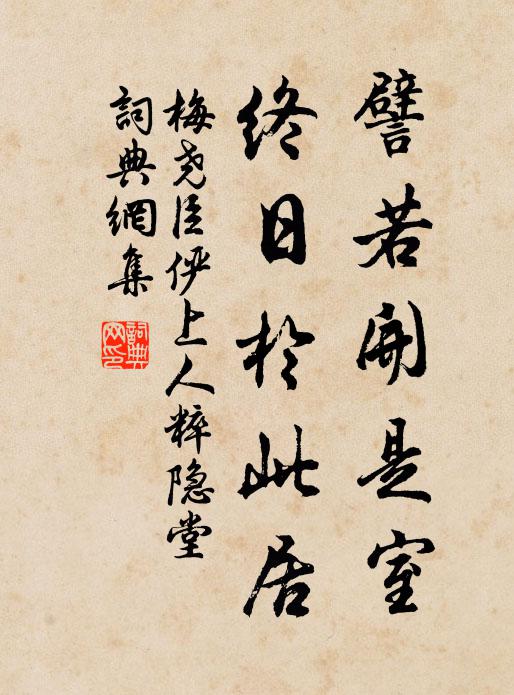 譬若開是室
終日於此居
梅尧臣俨上人粹隐堂
詞典網集
詞典網印